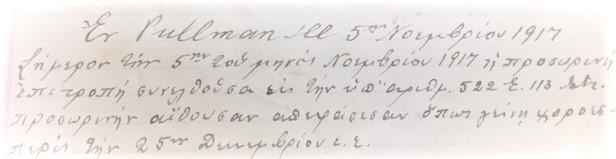 Ἐν Pullman Ill 5ην Νοεμβρίου 1917
Σήμερον τὴν 5ην τοῦ μηνός Νοεμβρίου 1917 ἡ προσωρινή
ἐπιτροπή συνελθοῦσα εἰς τὴν ὑπ' ἀριθμ. 522 E. 113 Str.
προσωρινήν αἴθουσαν ἀπεφάσισαν ὅπως γείνῃ χοροεσ-
περίς τὴν 25ην Δεκεμβρίου ἐ.ἔ.